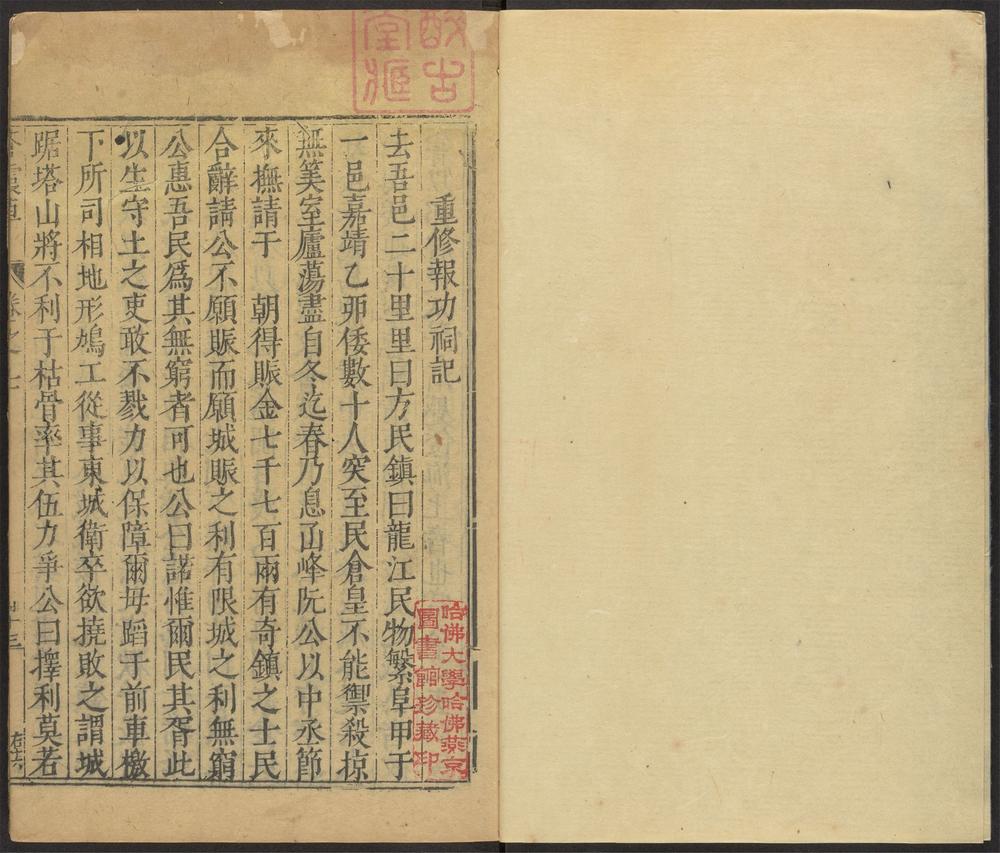 重修報功祠記
去吾邑二十里里曰方民鎮曰龍江民物繁阜甲于
一邑嘉靖乙卯倭數十人突至民倉皇不能禦殺掠
無筭室廬蕩盡自冬迄春乃息函峰阮公以中丞節
來撫請于 朝得賑金七千七百兩有奇鎮之士民
合辭請公不願賑而願城賑之利有限城之利無窮
公惠吾民爲其無窮者可也公曰諾惟爾民其胥此
以生守土之吏敢不戮力以保障爾毋蹈于前車檄
下所司相地形鳩工從事東城衛卒欲撓敗之謂城
踞塔山將不利于枯骨率其伍力爭公曰擇利莫若
卷之七
哈佛大學哈佛燕京
圖書館珍藏印